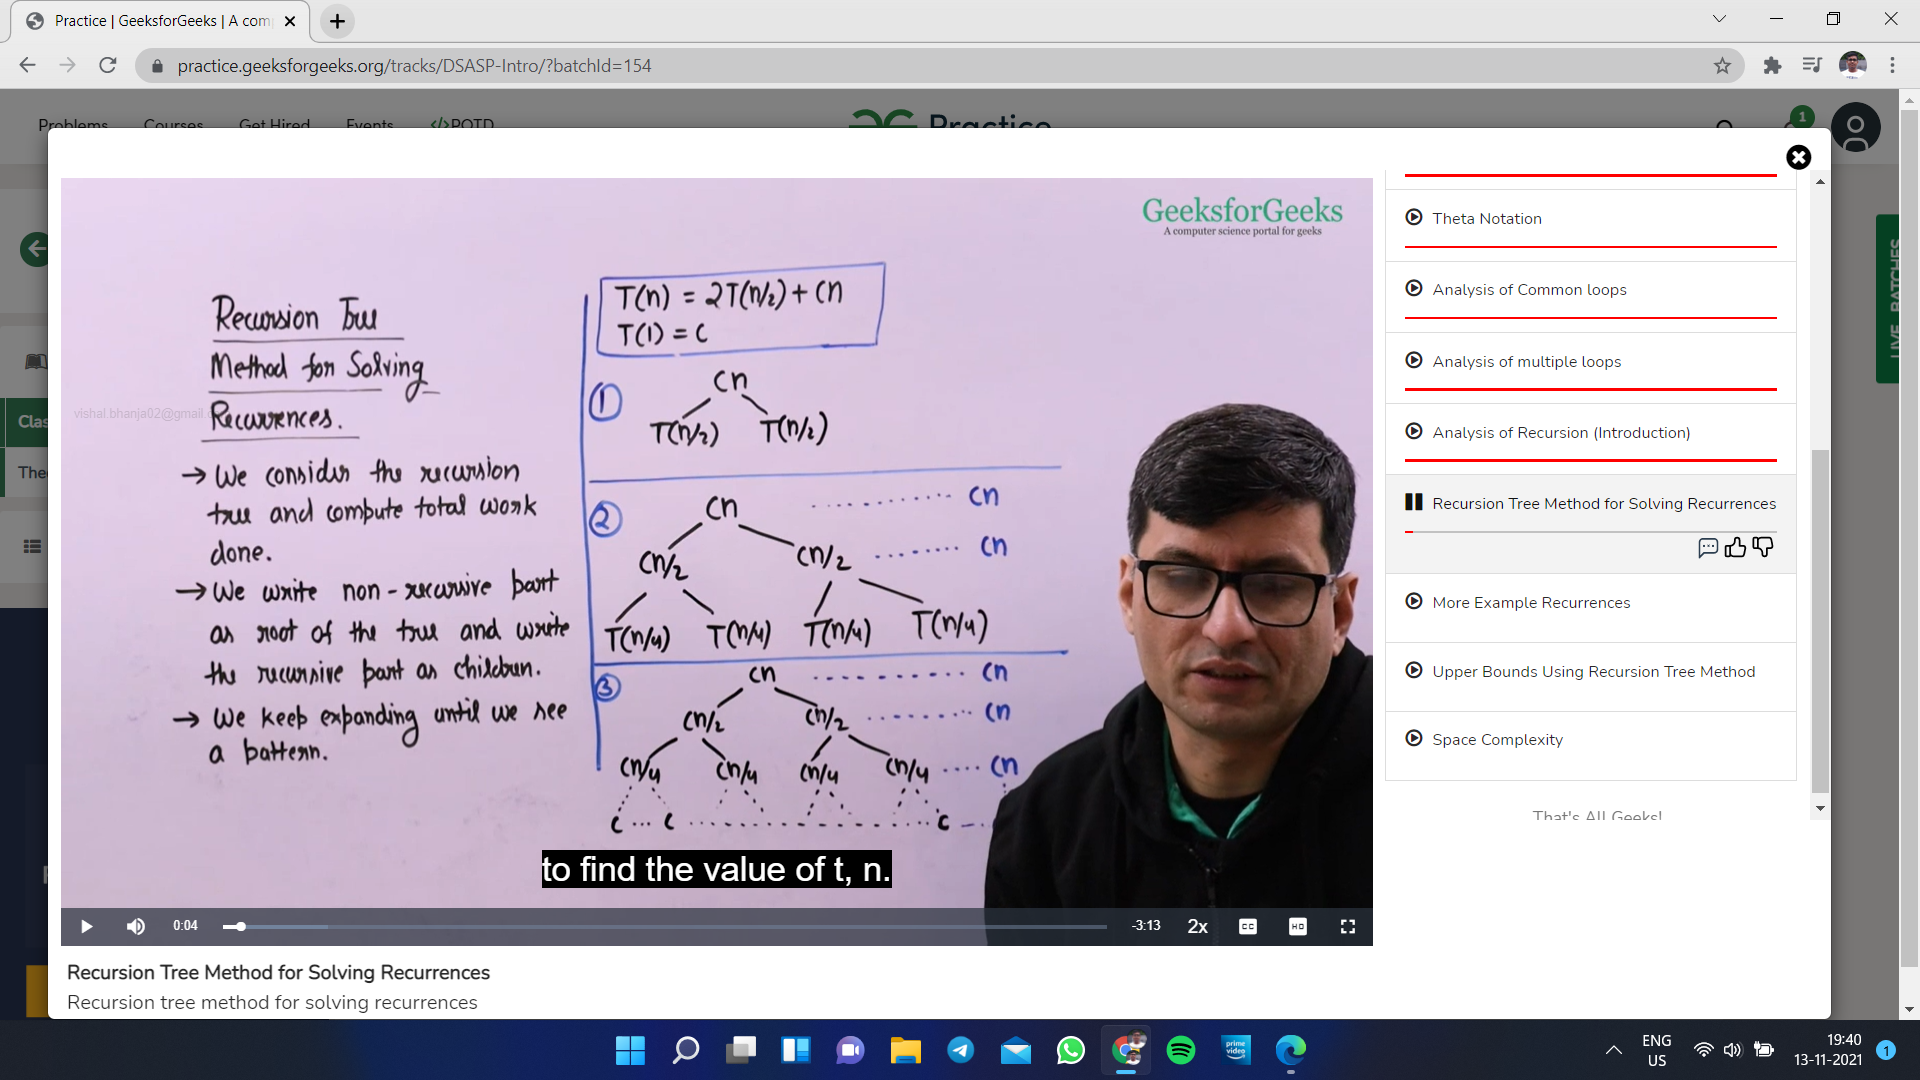 Practice | GeeksforGeeks | A com
practice.geeksforgeeks.org/tracks/DSASP-Intro/?batchId=154
Problems Courses Get Hired Events </>POTD Practice
1
GeeksforGeeks
A computer science portal for geeks
Recursion Tree
Method for Solving
Recurrences.
vishal.bhanja02@gmail.c
→ We consider the recursion
tree and compute total work
done.
→ We write non-recursive part
as root of the tree and write
the recursive part as children.
→ We keep expanding until we see
a pattern.
T(n) = 2T(n/2) + Cn
T(1) = C
1
Cn
T(n/2) T(n/2)
2
Cn ........ Cn
Cn/2 Cn/2 ........ Cn
T(n/4) T(n/4) T(n/4) T(n/4)
3
Cn .......... Cn
Cn/2 Cn/2 ........ Cn
Cn/4 Cn/4 Cn/4 Cn/4 .... Cn
C ... C .................. C
to find the value of t, n.
0:04 -3:13 2x CC HD
Recursion Tree Method for Solving Recurrences
Recursion tree method for solving recurrences
Theta Notation
Analysis of Common loops
Analysis of multiple loops
Analysis of Recursion (Introduction)
Recursion Tree Method for Solving Recurrences
More Example Recurrences
Upper Bounds Using Recursion Tree Method
Space Complexity
That's All Geeks!
LIVE BATCHES
Clas
Theo
prime video
ENG
US
19:40
13-11-2021
1